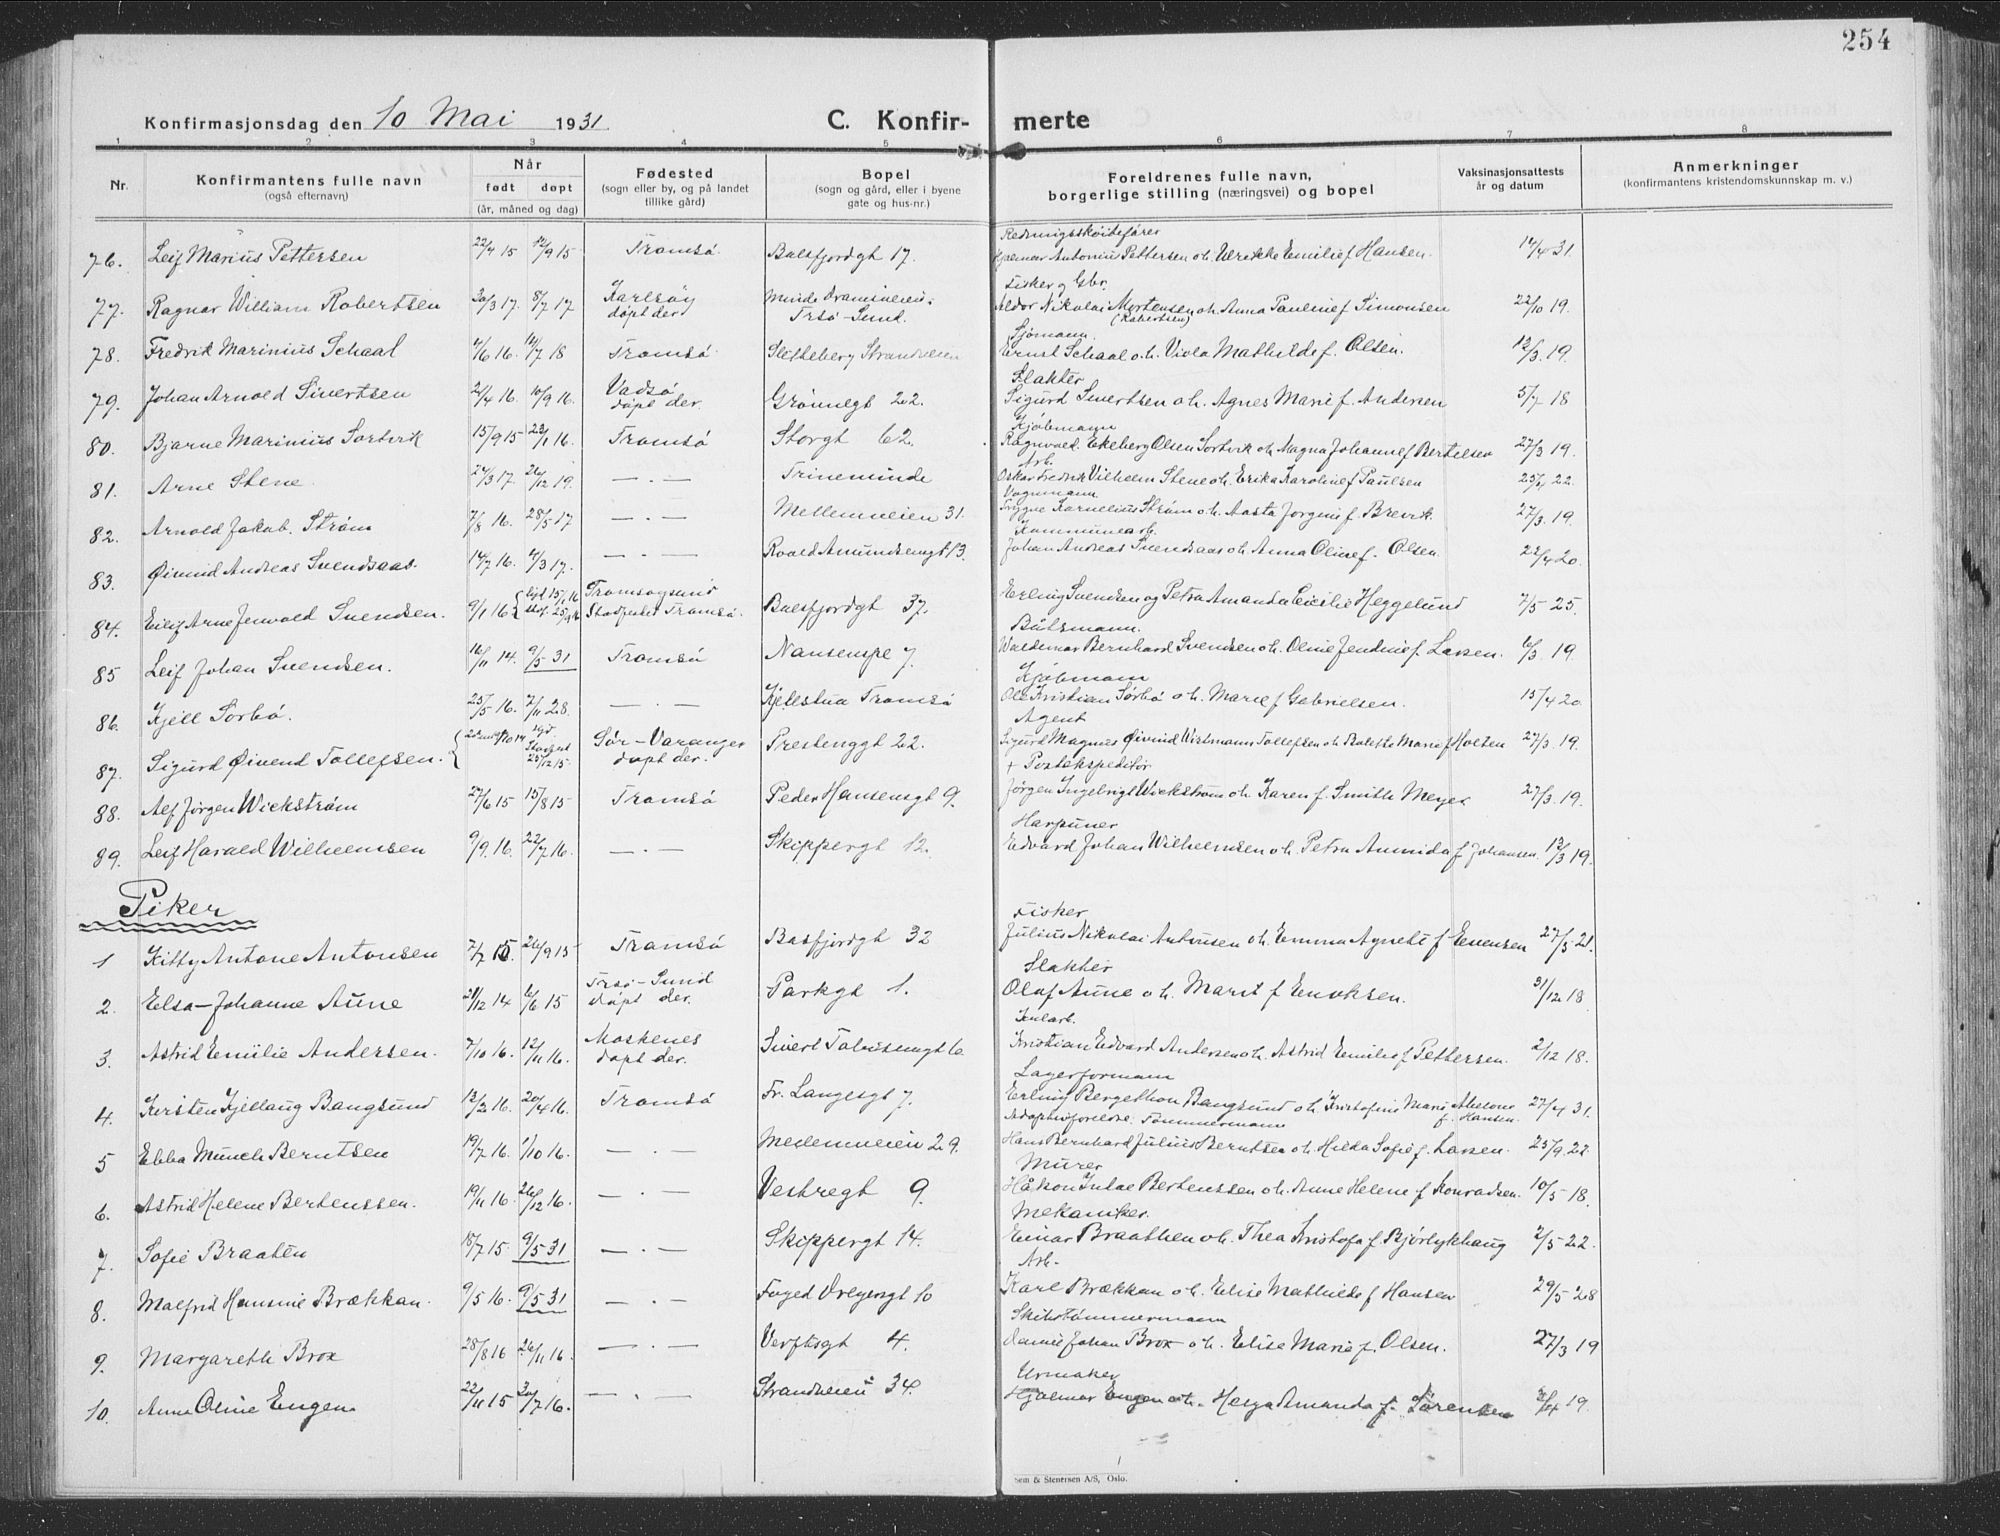 254
Konfirmasjonsdag den 10 Mai 1931
C. Konfirmerte
1 2 3 4 5 6 7 8
Nr. Konfirmantens fulle navn (også efternavn) Når født døpt (år, måned og dag) Fødested (sogn eller by, og på landet tillike gård) Bopel (sogn og gård, eller i byene gate og hus-nr.) Foreldrenes fulle navn, borgerlige stilling (næringsvei) og bopel Vaksinasjonsattests år og datum Anmerkninger (konfirmantens kristendomskunnskap m. v.)
Redningsskøitefører
76. Leif Marius Pettersen 22/4 15 12/9 15 Tromsø. Balsfjordgt 17. Hjalmar Antonius Pettersen o.h. Ulrikke Emilie f Hansen. 14/4 31.
Fisker og Gbr.
77. Ragnar William Robertsen 30/3 17. 8/7 17 Karlsøy døpt der Minde Dramsveien. Trsø-Sund. Aldor Nikolai Mortensen (Robertsen) o.h. Anna Pauline f Simonsen 22/10 19.
Sjømann.
78. Fredrik Marinius Schaal 4/6 16. 14/7 18 Tromsø. Sletteberg Strandveien Ernst Schaal o.h. Viola Mathilde f. Olsen. 12/3. 19.
Slakter
79. Johan Arnold Sivertsen 21/4 16. 10/9 16. Vadsø døpt der. Grønnegt 22. Sigurd Sivertsen o.h. Agnes Marie f. Andersen 5/7 18
Kjøbmann
80. Bjarne Marinius Sortvik 15/9 15 23/1 16. Tromsø Storgt 62. Ragnvald Ekeberg Olsen Sortvik o.h. Magna Johanne f Bertelsen 27/3 19.
Arb.
81. Arne Stene. 24/3 17. 26/12 19. — . — Trineminde Oskar Fredrik Vilhelm Stene o.h. Erika Karoline f Paulsen 25/4 22.
Vognmann
82. Arnold Jakob. Strøm 7/8 16. 28/5 17 — . — Mellemveien 31. Trygve Kornelius Strøm o.h. Aasta Jorgine f. Brevik. 27/3. 19.
Kommunearb.
83. Øivind Andreas Svendsaas. 14/7 16. 4/3 17. — . — Roald Amundsensgt. 13. Johan Andreas Svendsaas o.h. Anna Oline f. Olsen. 22/4 20.
84. Eilif Arne Jenvold Svendsen. 9/1 16 Tromsøysund Balsfjordgt 37. Erling Svendsen og Petra Amanda Cecilie Heggelund 7/5 25.
Båtsmann.
85 Leif Johan Svendsen. 16/11 14. 9/5 31 Tromsø Nansenspl 7. Waldemar Bernhard Svendsen o.h. Oline Jendine f. Larsen. 6/3 19.
Kjøbmann
86. Kjell Sørbø. 25/5 16. 7/11 28. — . — Kjellstua Tromsø Ole Kristian Sørbø o.h. Marie f Gabrielsen. 15/4 20.
Agent
87. Sigurd Øivend Tollefsen. Sør-Varanger døpt der. Prestenggt 22. Sigurd Magnus Øivind Wistmann Tollefsen o.h. Marie f Holten 27/3. 19.
+ Postekspeditør
88. Alf Jørgen Wickstrøm 27/6 15 15/8 15 Tromsø Peder Hansensgt 9. Jørgen Ingebrigt Wickstrøm o.h. Karen f. Smith Meyer 27/3. 19.
Harpuner
89. Leif Harald Wilhelmsen 9/9. 16. 22/7 16. — . — Skippergt 12. Edvard Johan Wilhelmsen o.h. Petra Ammida f. Johansen. 12/3 19.
Piker
Fisker
1 Kitty Antone Antonsen 7/7 15. 26/9 15 Tromsø Balsfjordgt 32 Julius Nikolai Antonsen o.h. Emma Agnete f Evensen 27/5 21.
Slakter
2. Elsa-Johanne Aune 21/12 14 6/6 15 Trsø-Sund døpt der. Parkgt 1. Olaf Aune o.h. Marit f Enoksen. 31/12 18
Kularb.
3. Astrid Emilie Andersen. 7/10 16. 12/11 16. Moskenes døpt der. Sivert Tobiasensgt 6. Kristian Edvard Andersen o.h. Astrid Emilie f Pettersen. 2/12 18.
Lagerformann
4. Kirsten Kjellaug Bangsund 13/2 16. 20/4 16. Tromsø Fr. Langesgt 7. Erling Bergethon Bangsund o.h. Kristofine Marie Abelone f. Hansen. 27/4 31.
Adoptivforeldre: Tømmermann
5 Ebba Münch Berntsen 19/7 16. 1/10 16. — . — Mellemveien 29. Hans Bernhard Julius Berntsen o.h. Hilda Sofie f. Larsen. 25/9. 22
Murer
6. Astrid Helene Bertenssen. 19/11 16. 26/12 16. — . — Vestregt 9. Håkon Julae Bertenssen o.h. Anne Helene f Konradsen. 10/5 18.
Mekaniker.
7. Sofie Braaten 18/7 15. 9/5 31 — . — Skippergt 14. Einar Braathen o.h. Thea Kristofa f Bjørlykhaug 2/5 22.
Arb.
8. Malfrid Hansine Brækkan. 9/5 16. 9/5 31 — . — Foged Dreyersgt 10 Karl Brækkan o.h. Elise Mathilde f Hansen 29/5 28
Skibstømmermann
9. Margareth Brox 28/8 16 26/11 16. — . — Verftsgt 4. Daniel Johan Brox o.h. Elise Marie f. Olsen. 27/3 19
Urmaker
10. Anna Oline Engen 22/11 15 30/7 16. — . — Strandveien 34. Hjalmar Engen o.h. Helga Amanda f. Sørensen 19.
Sem & Stenersen A/S, Oslo.